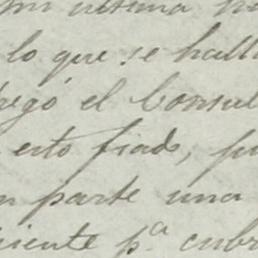 mi ultima
lo que se hall
regó el Consul
esto fiado, pu
parte una
iente p.ª cubr